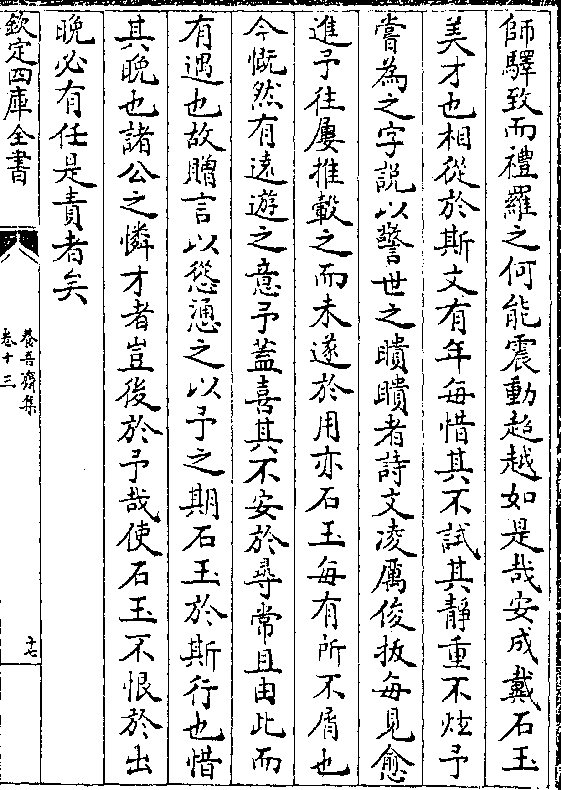 師驛致而禮羅之何能震動超越如是哉安成戴石玉
美才也相從於斯文有年每惜其不試其靜重不炫予
嘗為之字說以警世之瞶瞶者詩文凌厲俊拔每見愈
進予往屢推轂之而未遂於用亦石玉每有所不屑也
今慨然有逺遊之意予蓋喜其不安於尋常且由此而
有遇也故贈言以慫慂之以予之期石玉於斯行也惜
其晩也諸公之憐才者豈後於予哉使石玉不恨於出
晩必有任是責者矣
欽定四庫全書
養吾齋集
卷十三
十七